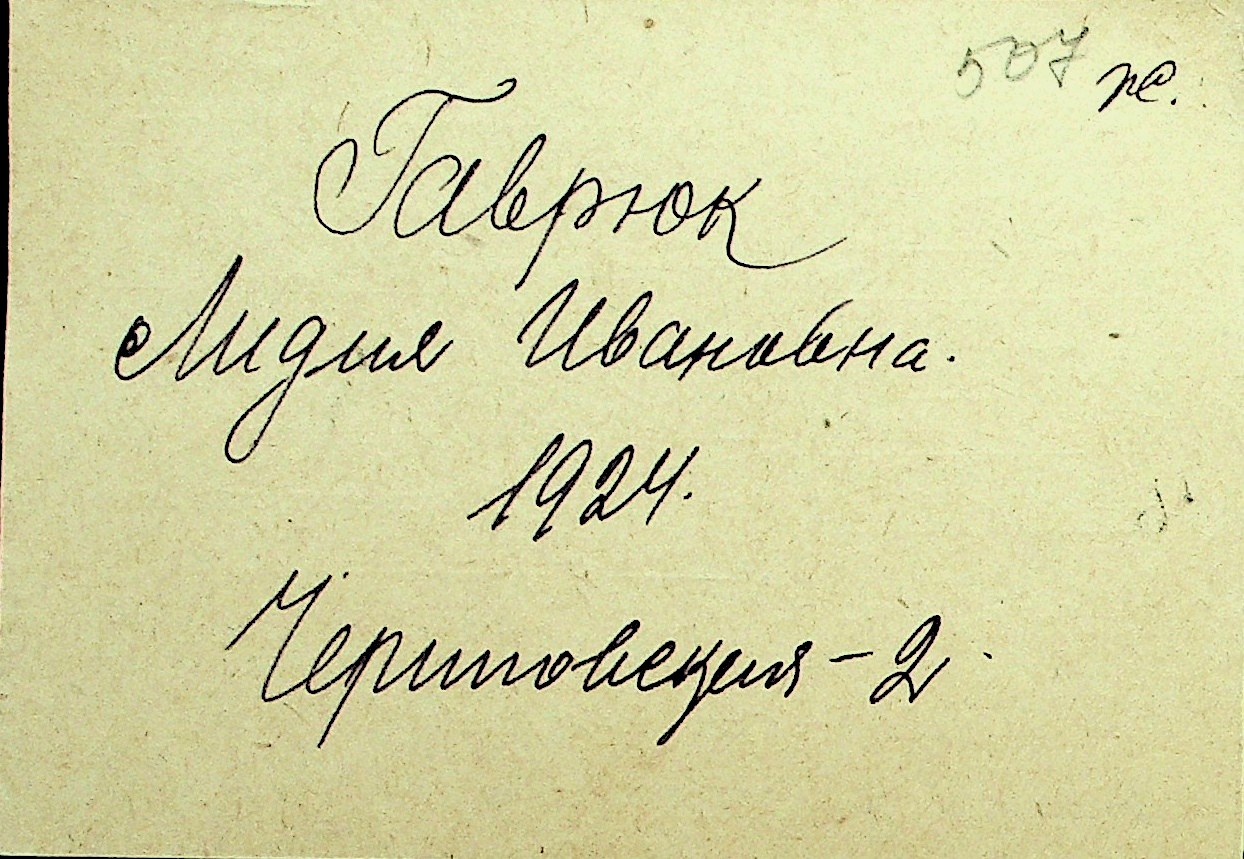 507 ж.
Гаврюк
Лидия Ивановна.
1924.
- 2.